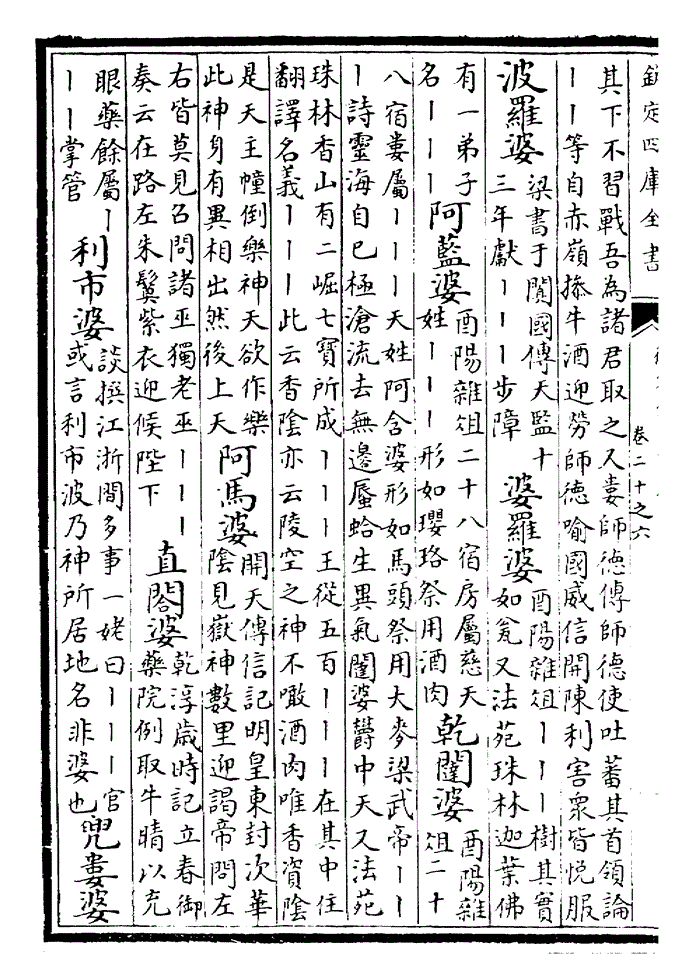 欽定四庫全書
卷二十之六
其下不習戰吾為諸君取之又婁師德傳師德使吐蕃其首領論
丨丨等自赤嶺操牛酒迎勞師德喻國威信開陳利害衆皆悅服
波羅婆 梁書于闐國傳天監十
三年獻丨丨丨步障
婆羅婆 酉陽雜俎丨丨丨樹其實
如瓮又法苑珠林迦葉佛
有一弟子
名丨丨丨
阿藍婆 酉陽雜俎二十八宿房屬慈天
姓丨丨丨形如瓔珞祭用酒肉
乾闥婆 酉陽雜
俎二十
八宿婁屬丨丨丨天姓阿含婆形如馬頭祭用大麥梁武帝丨丨
丨詩靈海自已極滄流去無邊蜃蛤生異氣闥婆鬱中天又法苑
珠林香山有二崛七寶所成丨丨丨王從五百丨丨丨在其中住
翻譯名義丨丨丨此云香陰亦云陵空之神不噉酒肉唯香資陰
是天主幢倒樂神天欲作樂
此神身有異相出然後上天
阿馬婆 開天傳信記明皇東封次華
陰見嶽神數里迎謁帝問左
右皆莫見召問諸巫獨老巫丨丨丨
奏云在路左朱鬢紫衣迎候陛下
直閤婆 乾淳歲時記立春御
藥院例取牛睛以充
眼藥餘屬丨
丨丨掌管
利市婆 談撰江浙間多事一姥曰丨丨丨官
或言利市波乃神所居地名非婆也
兜婁婆